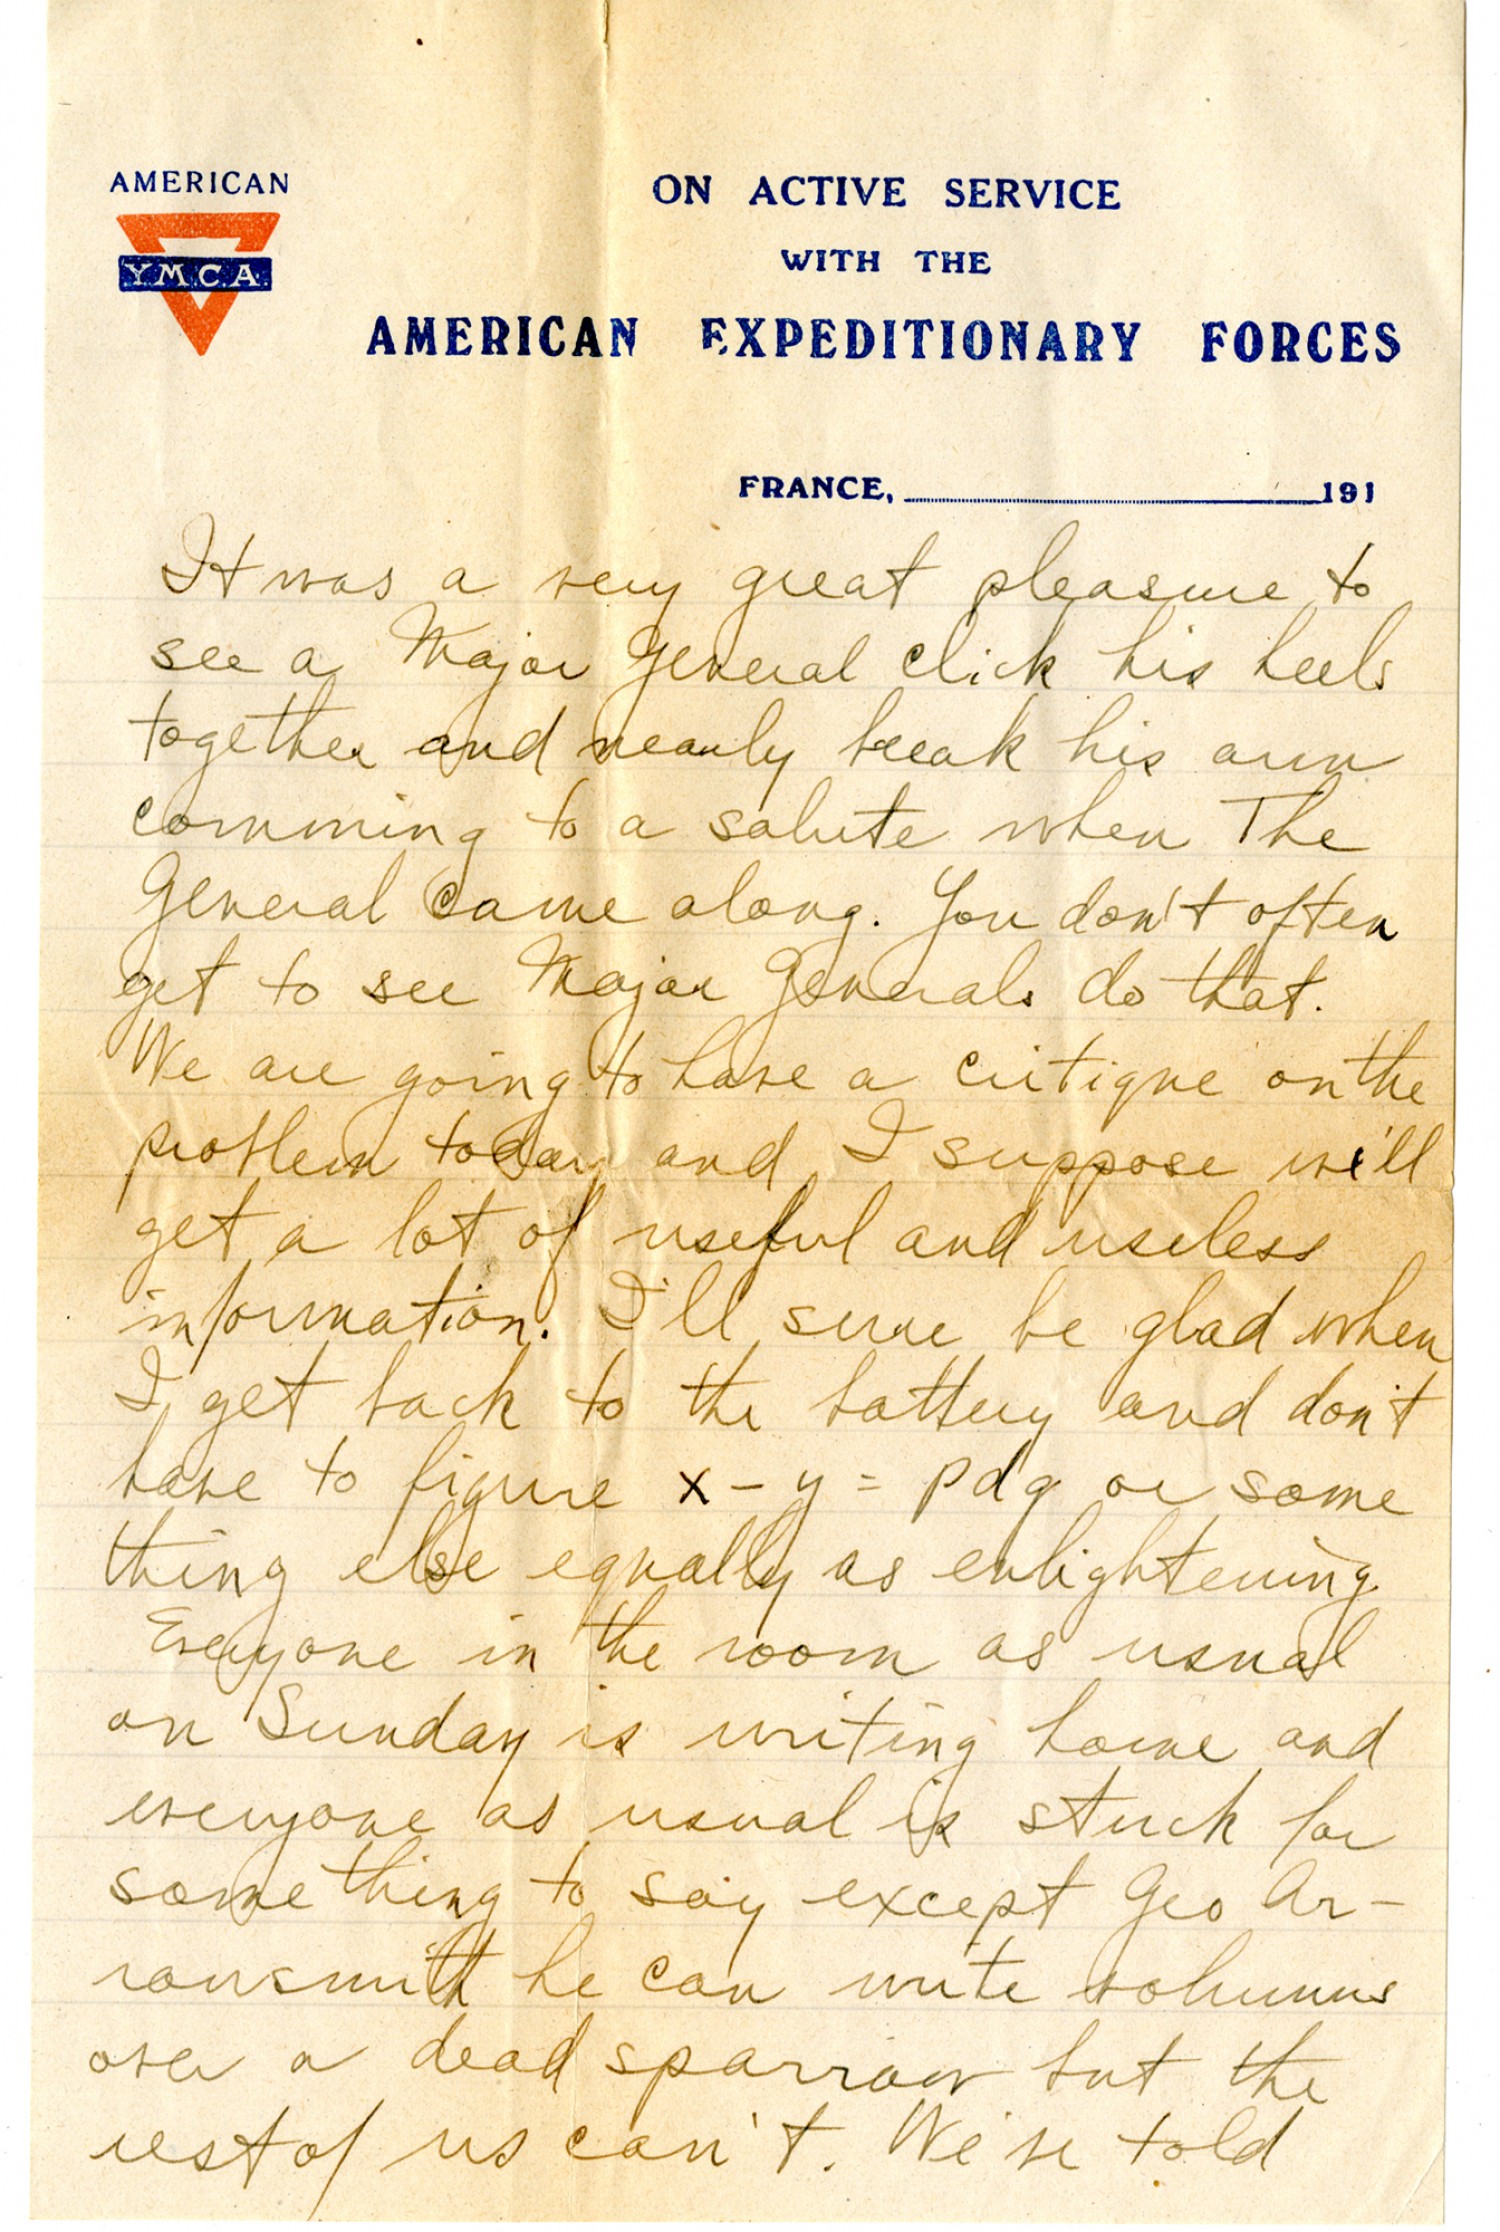 AMERICAN
Y.M.C.A.
ON ACTIVE SERVICE
WITH THE
AMERICAN EXPEDITIONARY FORCES
FRANCE, 191
It was a very great pleasure to
see a Major General click his heels
together and nearly break his arm
comming to a salute when The
General came along. You don't often
get to see Major Generals do that.
We are going to have a critique on the
problem today and I suppose we'll
get a lot of useful and useless
information. I'll sure be glad when
I get back to the battery and don't
have to figure x - y = pdq or some
thing else equally as enlightening
Everyone in the room as usual
on Sunday is writing home and
everyone as usual is stuck for
something to say except Geo Ar-
rowsmith he can write volumns
over a dead sparrow but the
rest of us can't. We've told